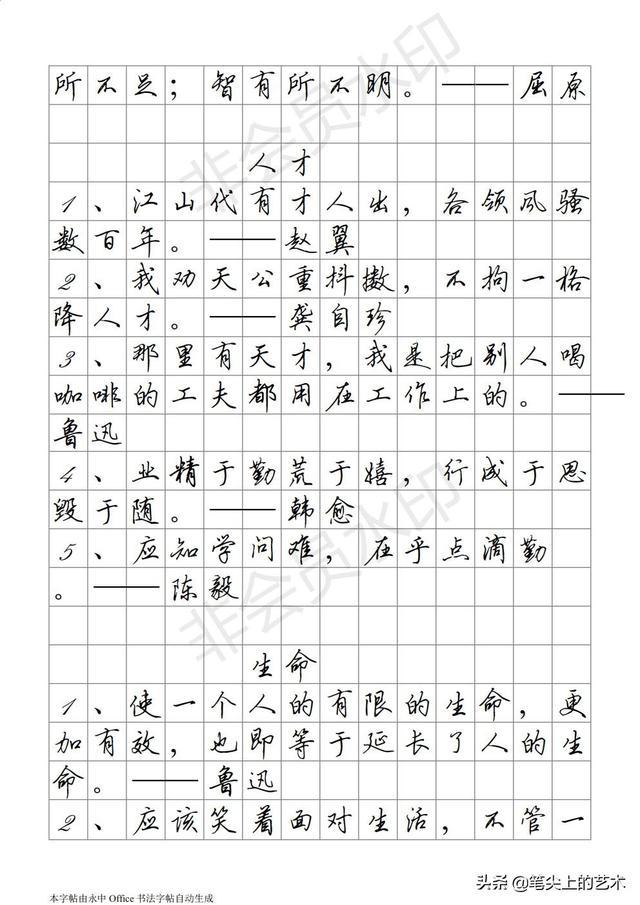 所不足；智有所不明。——屈原
人才
1、江山代有才人出，各领风骚
数百年。——赵翼
2、我劝天公重抖擞，不拘一格
降人才。——龚自珍
3、那里有天才，我是把别人喝
咖啡的工夫都用在工作上的。——
鲁迅
4、业精于勤荒于嬉，行成于思
毁于随。——韩愈
5、应知学问难，在乎点滴勤
。——陈毅
生命
1、使一个人的有限的生命，更
加有效，也即等于延长了人的生
命。——鲁迅
2、应该笑着面对生活，不管一
本字帖由水中Office书法字帖自动生成
头条 @笔尖上的艺术
非会员水印
非会员水印